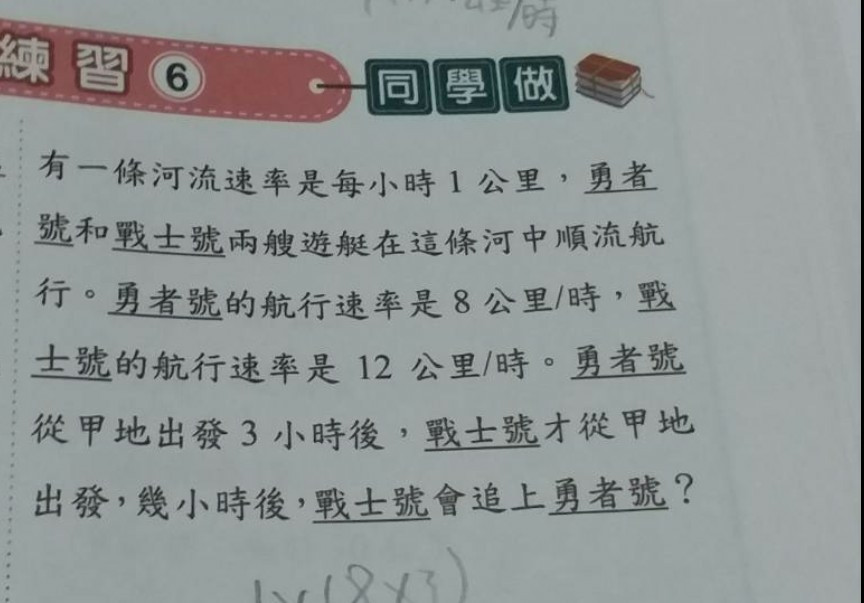 練習6
同學做
有一條河流速率是每小時1公里，勇者
號和戰士號兩艘遊艇在這條河中順流航
行。勇者號的航行速率是8公里/時，戰
士號的航行速率是 12 公里/時。勇者號
從甲地出發3小時後，戰士號才從甲地
出發，幾小時後，戰士號會追上勇者號？